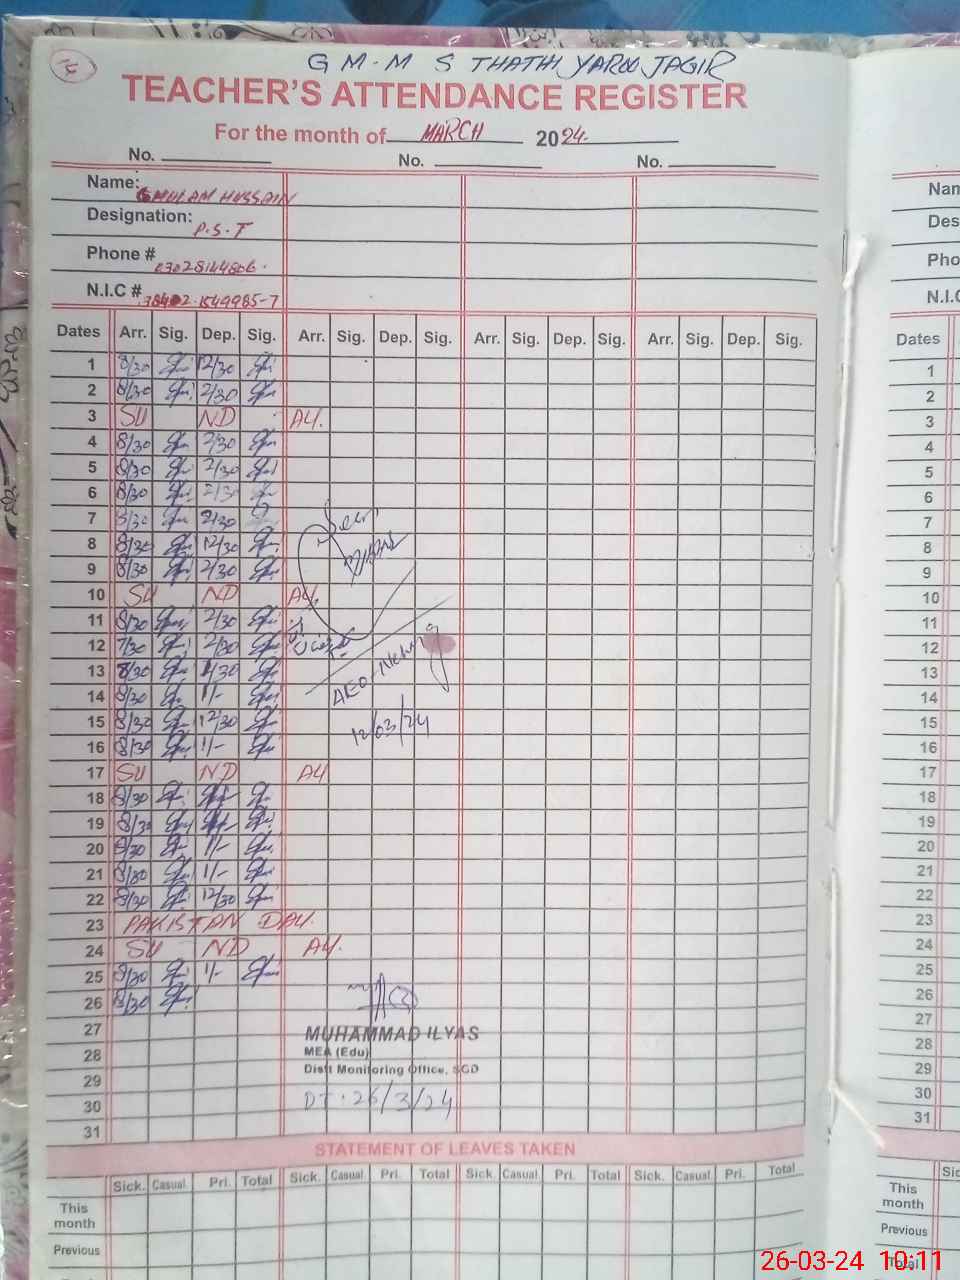 G M. M S THATHI YAROO JAGIR
TEACHER'S ATTENDANCE REGISTER
For the month of MARCH 2024.
No. No. No.
Name: GHULAM HUSSAIN
Designation: P.S.T
Phone # 03028144806.
N.I.C # 38402-1549985-7
Dates Arr. Sig. Dep. Sig. Arr. Sig. Dep. Sig. Arr. Sig. Dep. Sig. Arr. Sig. Dep. Sig.
1 8/30 12/30
2 8/30 2/30
3 SU ND AY.
4 8/30 2/30
5 8/30 2/30
6 8/30 2/30
7 8/30 2/30
8 8/30 12/30
9 8/30 2/30
10 SU ND AY.
11 8/30 2/30
12 7/30 2/30
13 8/30 1/30
14 8/30 1/-
15 8/30 12/30
16 8/30 1/-
17 SU ND AY
18 8/30
19 8/30
20 8/30 1/-
21 8/30 1/-
22 8/30 12/30
23 PAKISTAN DAY.
24 SU ND AY.
25 8/30 1/-
26 8/30
27
28
29
30
31
Seen
AEO
12/03/24
MUHAMMAD ILYAS
MEA (Edu)
Distt Monitoring Office, SGD
DT. 26/3/24
STATEMENT OF LEAVES TAKEN
Sick. Casual. Pri. Total Sick. Casual. Pri. Total Sick. Casual. Pri. Total Sick. Casual. Pri. Total
This month
Previous
Nam
Des
Pho
N.I.C
Dates
1
2
3
4
5
6
7
8
9
10
11
12
13
14
15
16
17
18
19
20
21
22
23
24
25
26
27
28
29
30
31
Sic
This month
Previous
Total
26-03-24 10:11